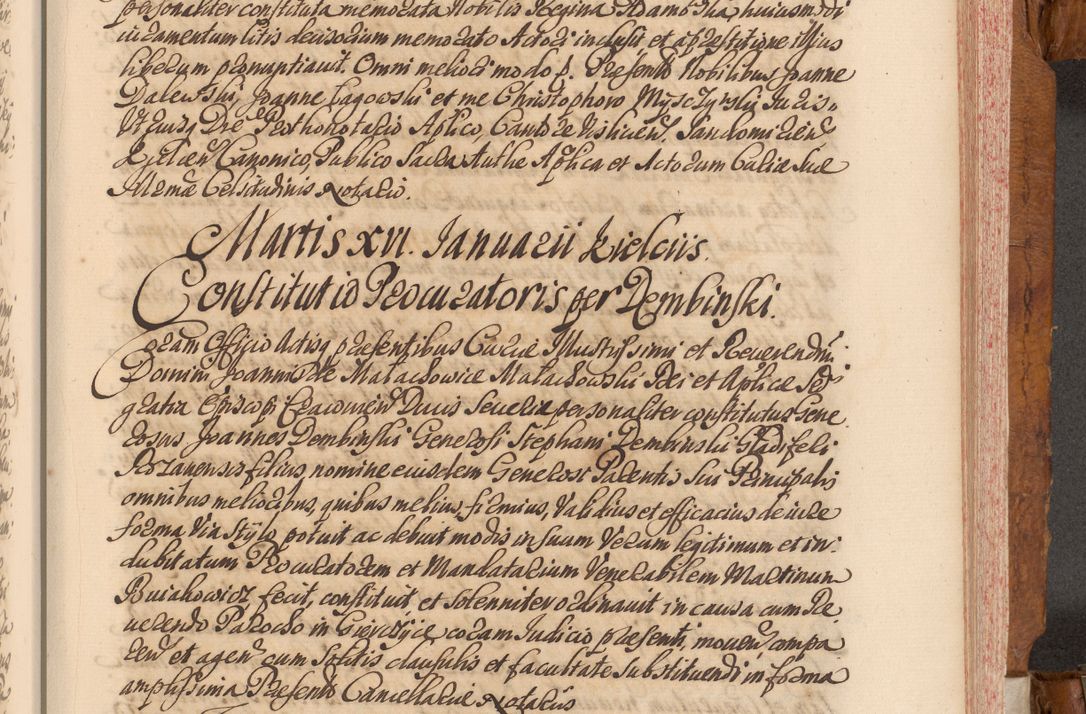 personaliter constituta memorata Nobilis Regina Adamowska, huiusmodi
iuramentum litis decisorium memorato Actori inclusit et ab restitutione illius
liberum pronuntiavit. Omni meliori modo p. Presentib Nobilibus Joanne
Dalewski, Joanne Łagowski et me Christophoro Myszczynski Juris
Utriusq Dre Prothonotario Aplico, Cantore Vislicien Sandomirien
Kielcen Canonico, Publico Sacra Authe Aplica et Actorum Curiæ Suæ
Illrmæ Celsitudinis Notario.
Martis XVI. Januarii Kielciis.
Constitutio Procuratoris per Dembinski.
Coram Officio Actisq præsentibus Curiæ Illustrissimi et Reverendmi
Domini Joannis de Małachowice Małachowski Dei et Aplicæ Sedis
gratia Episcopi Cracovien Ducis Severiæ personaliter constitutus Gene
rosus Joannes Dembinski Generosi Stephani Dembinskii Gladiferi
filius, nomine eiusdem Generosi Parentis Sui Principalis
omnibus melioribus, quibus melius, firmius, Validius et efficacius de iure
forma Via Stylo potuit ac debuit modis in suum Verum legitimum et in
dubitatum Procuratorem et Mandatarium Venerabilem Martinum
fecit, constituit, et solenniter ordinavit in causa cum Re
verendo Parocho in coram Judicio præsenti, moven compa
ren et agen cum solitis clausulis et facultate substituendi in forma
amplissima Presentib Cancellariæ Notariis